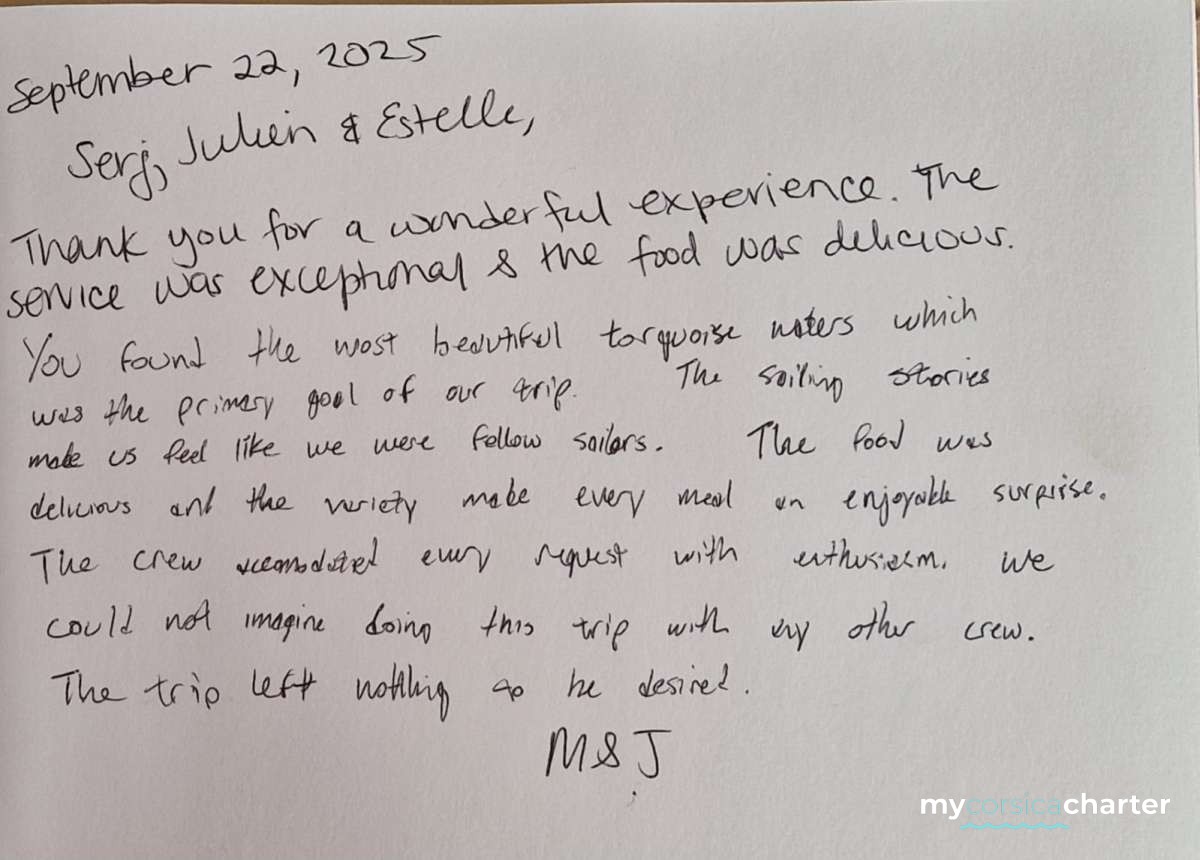 September 22, 2025
Serj, Julien & Estelle,
Thank you for a wonderful experience. The
service was exceptional & the food was delicious.
You found the most beautiful torquoise waters which
was the primary goal of our trip. The sailing stories
made us feel like we were fellow sailors. The food was
delicious and the variety made every meal an enjoyable surprise.
The crew accomodated every request with enthusiasm. We
could not imagine doing this trip with any other crew.
The trip left nothing to be desired.
M & J
mycorsicacharter